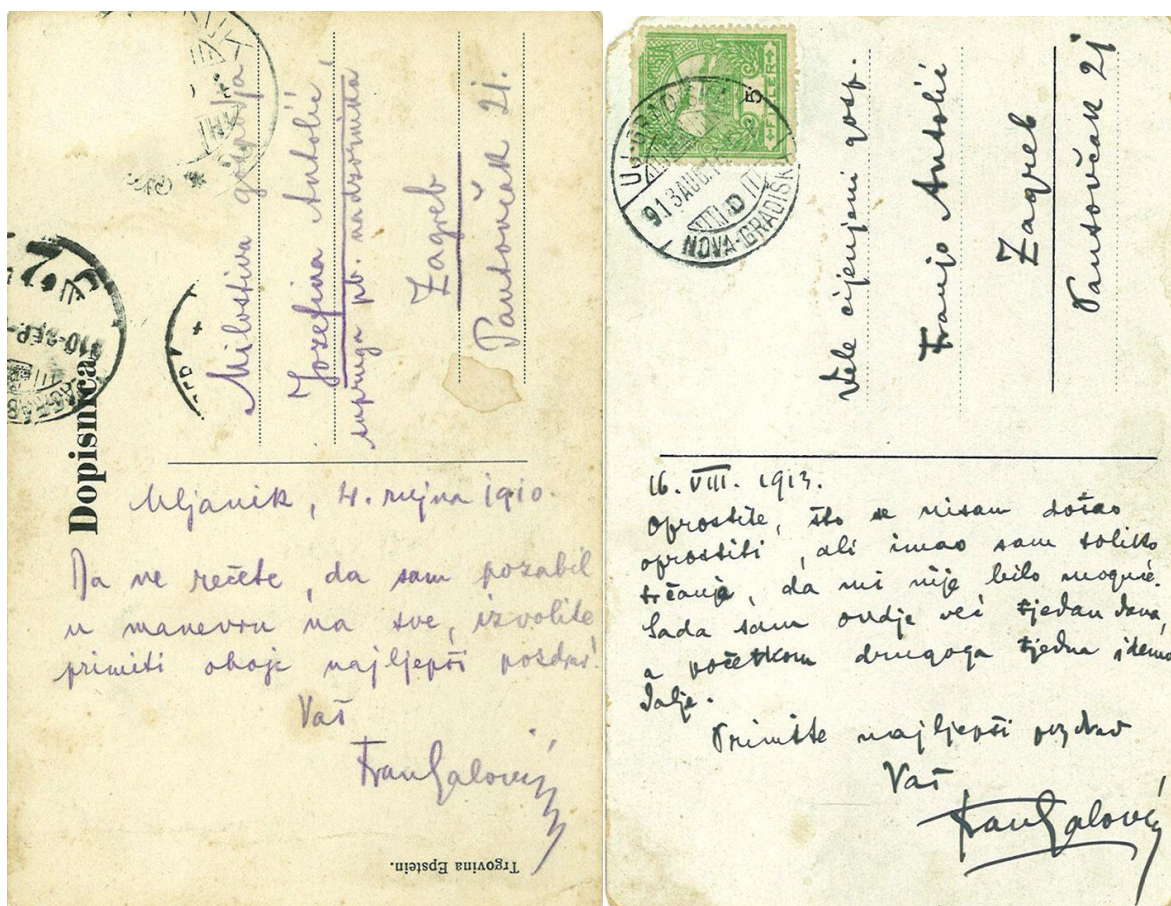 Dopisnica
Milostiva gospodja
Jozefina Antolić
supruga pb. nadzornika
Zagreb
Pantovčak 2j.
Mljanik, 4. rujna 1910.
Da ne rečete, da sam pozabil
u manevru na sve, izvolite
primiti oboje najljepši pozdrav.
Vaš
FranGalović
Trgovina Epstein.
5 FILLER
UJ-GRADISKA
913 AUG.
NOVA-GRADIŠKA
Vele cijenjeni gosp.
Franjo Antolić
Zagreb
Pantovčak 2j
16. VIII. 1913.
Oprostite, što se nisam došao
oprostiti, ali imao sam toliko
trčanja, da mi nije bilo moguće.
Sada sam ovdje već tjedan dana,
a početkom drugoga tjedna idemo
dalje.
Primite najljepši pozdrav
Vaš
FranGalović